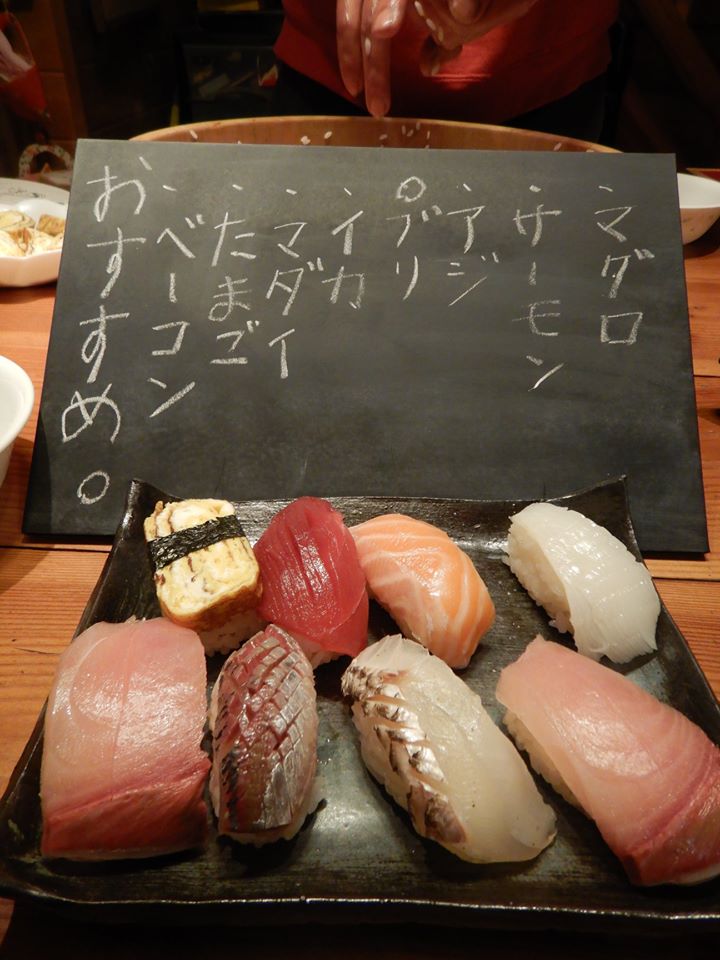 ・マグロ
・サーモン
・アジ
○ブリ
・イカ
・マダイ
・たまご
・ベーコン
・おすすめ。